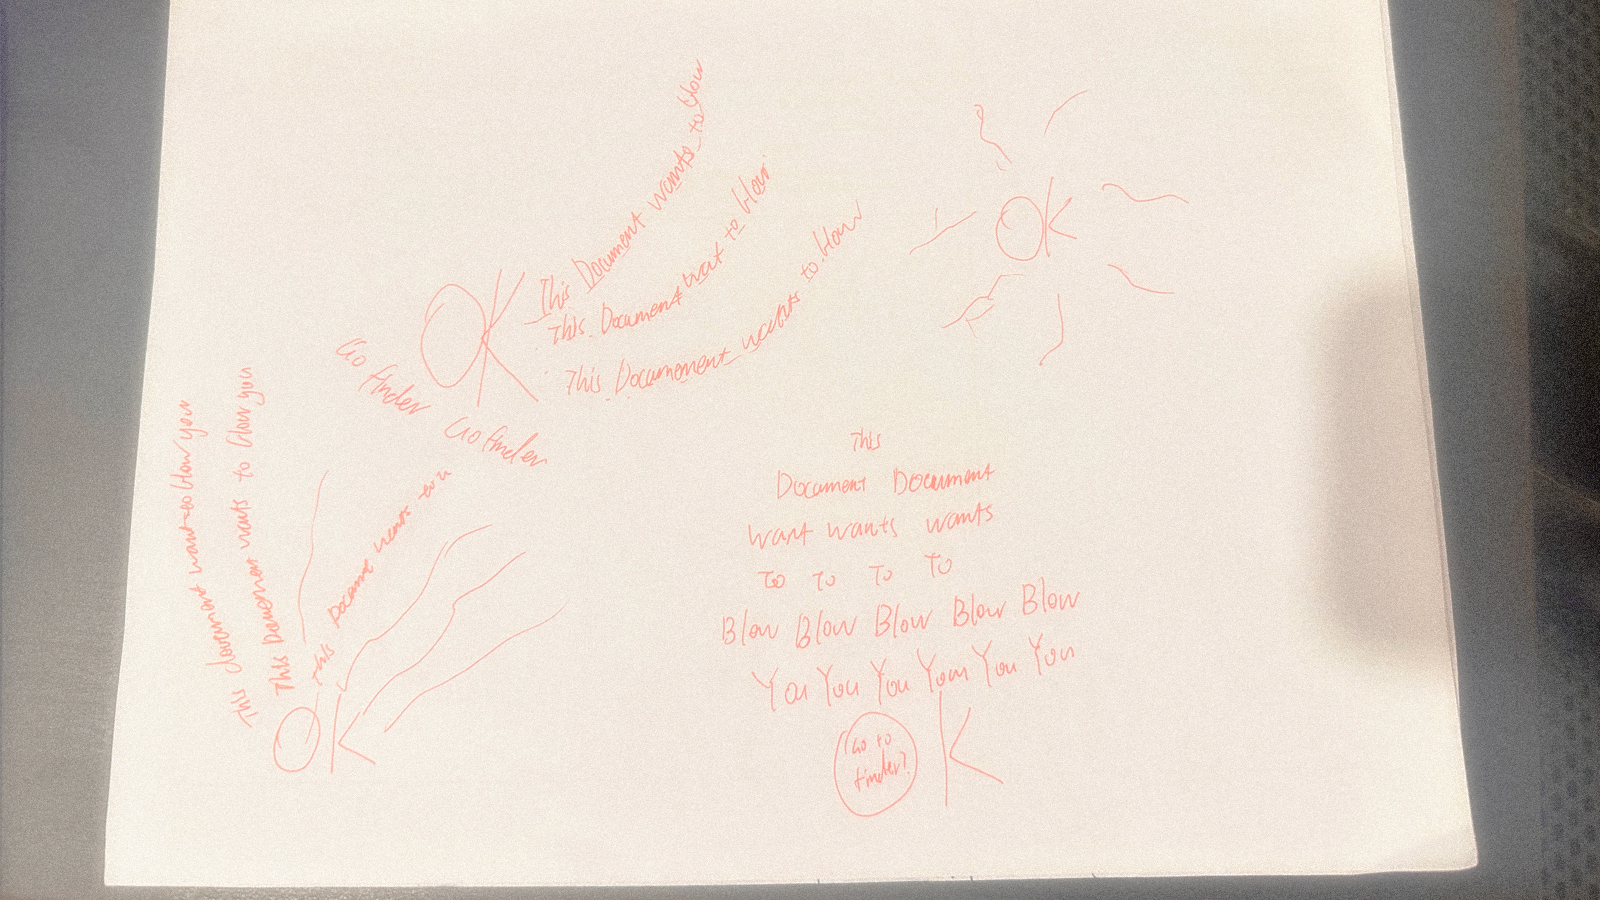 This Document wants to Blow
This Document want to Blow
This Documement wants to Blow
OK
Go finder Go finder
OK
This document want to blow you
This Document wants to Blow you
This Document wants
OK
This
Document Document
want wants wants
To To To To
Blow Blow Blow Blow Blow
You You You You You You
Go to
finder?
K